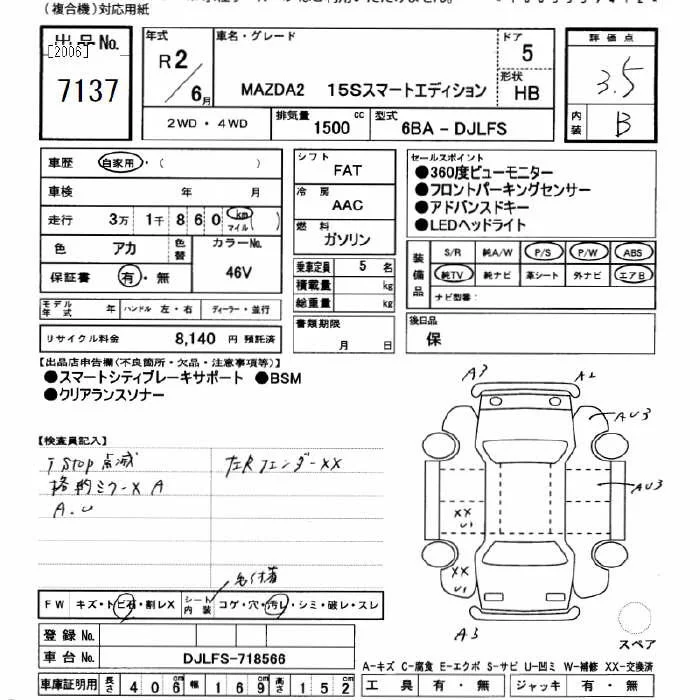 (複合機)対応用紙
出品No.
[2006]
7137
年式
R2/6月
車名・グレード
MAZDA2 15Sスマートエディション
ドア
5
形状
HB
評価点
3.5
内装
B
2WD・4WD
排気量
1500 cc
型式
6BA-DJLFS
車歴 自家用・( )
車検 年 月
走行 3万 1千 8 6 0 km マイル
色 アカ 色替 カラーNo. 46V
保証書 有・無
モデル年式 年 ハンドル 左・右 ディーラー・並行
リサイクル料金 8,140 円 預託済
シフト
FAT
冷房
AAC
燃料
ガソリン
乗車定員 5 名
積載量 kg
総重量 kg
書類期限
月 日
セールスポイント
●360度ビューモニター
●フロントパーキングセンサー
●アドバンスドキー
●LEDヘッドライト
装備品
S/R 純A/W P/S P/W ABS
純TV 純ナビ 革シート 外ナビ エアB
ナビ型番:
後日品
保
【出品店申告欄(不良箇所・欠品・注意事項等)】
●スマートシティブレーキサポート ●BSM
●クリアランスソナー
【検査員記入】
i Stop 点滅
左Rフェンダーxx
格納ミラーX A
A.U
A3
A1
AU3
AU3
XX
U1
XX
U1
A3
スペア
FW キズ・トビ石・割レX シート内装 コゲ・穴・汚レ・シミ・破レ・スレ
登録No.
車台No. DJLFS-718566
車庫証明用 長さ 406 cm 幅 169 cm 高さ 152 cm
A-キズ C-腐食 E-エクボ S-サビ U-凹ミ W-補修 XX-交換済
工具 有・無 ジャッキ 有・無